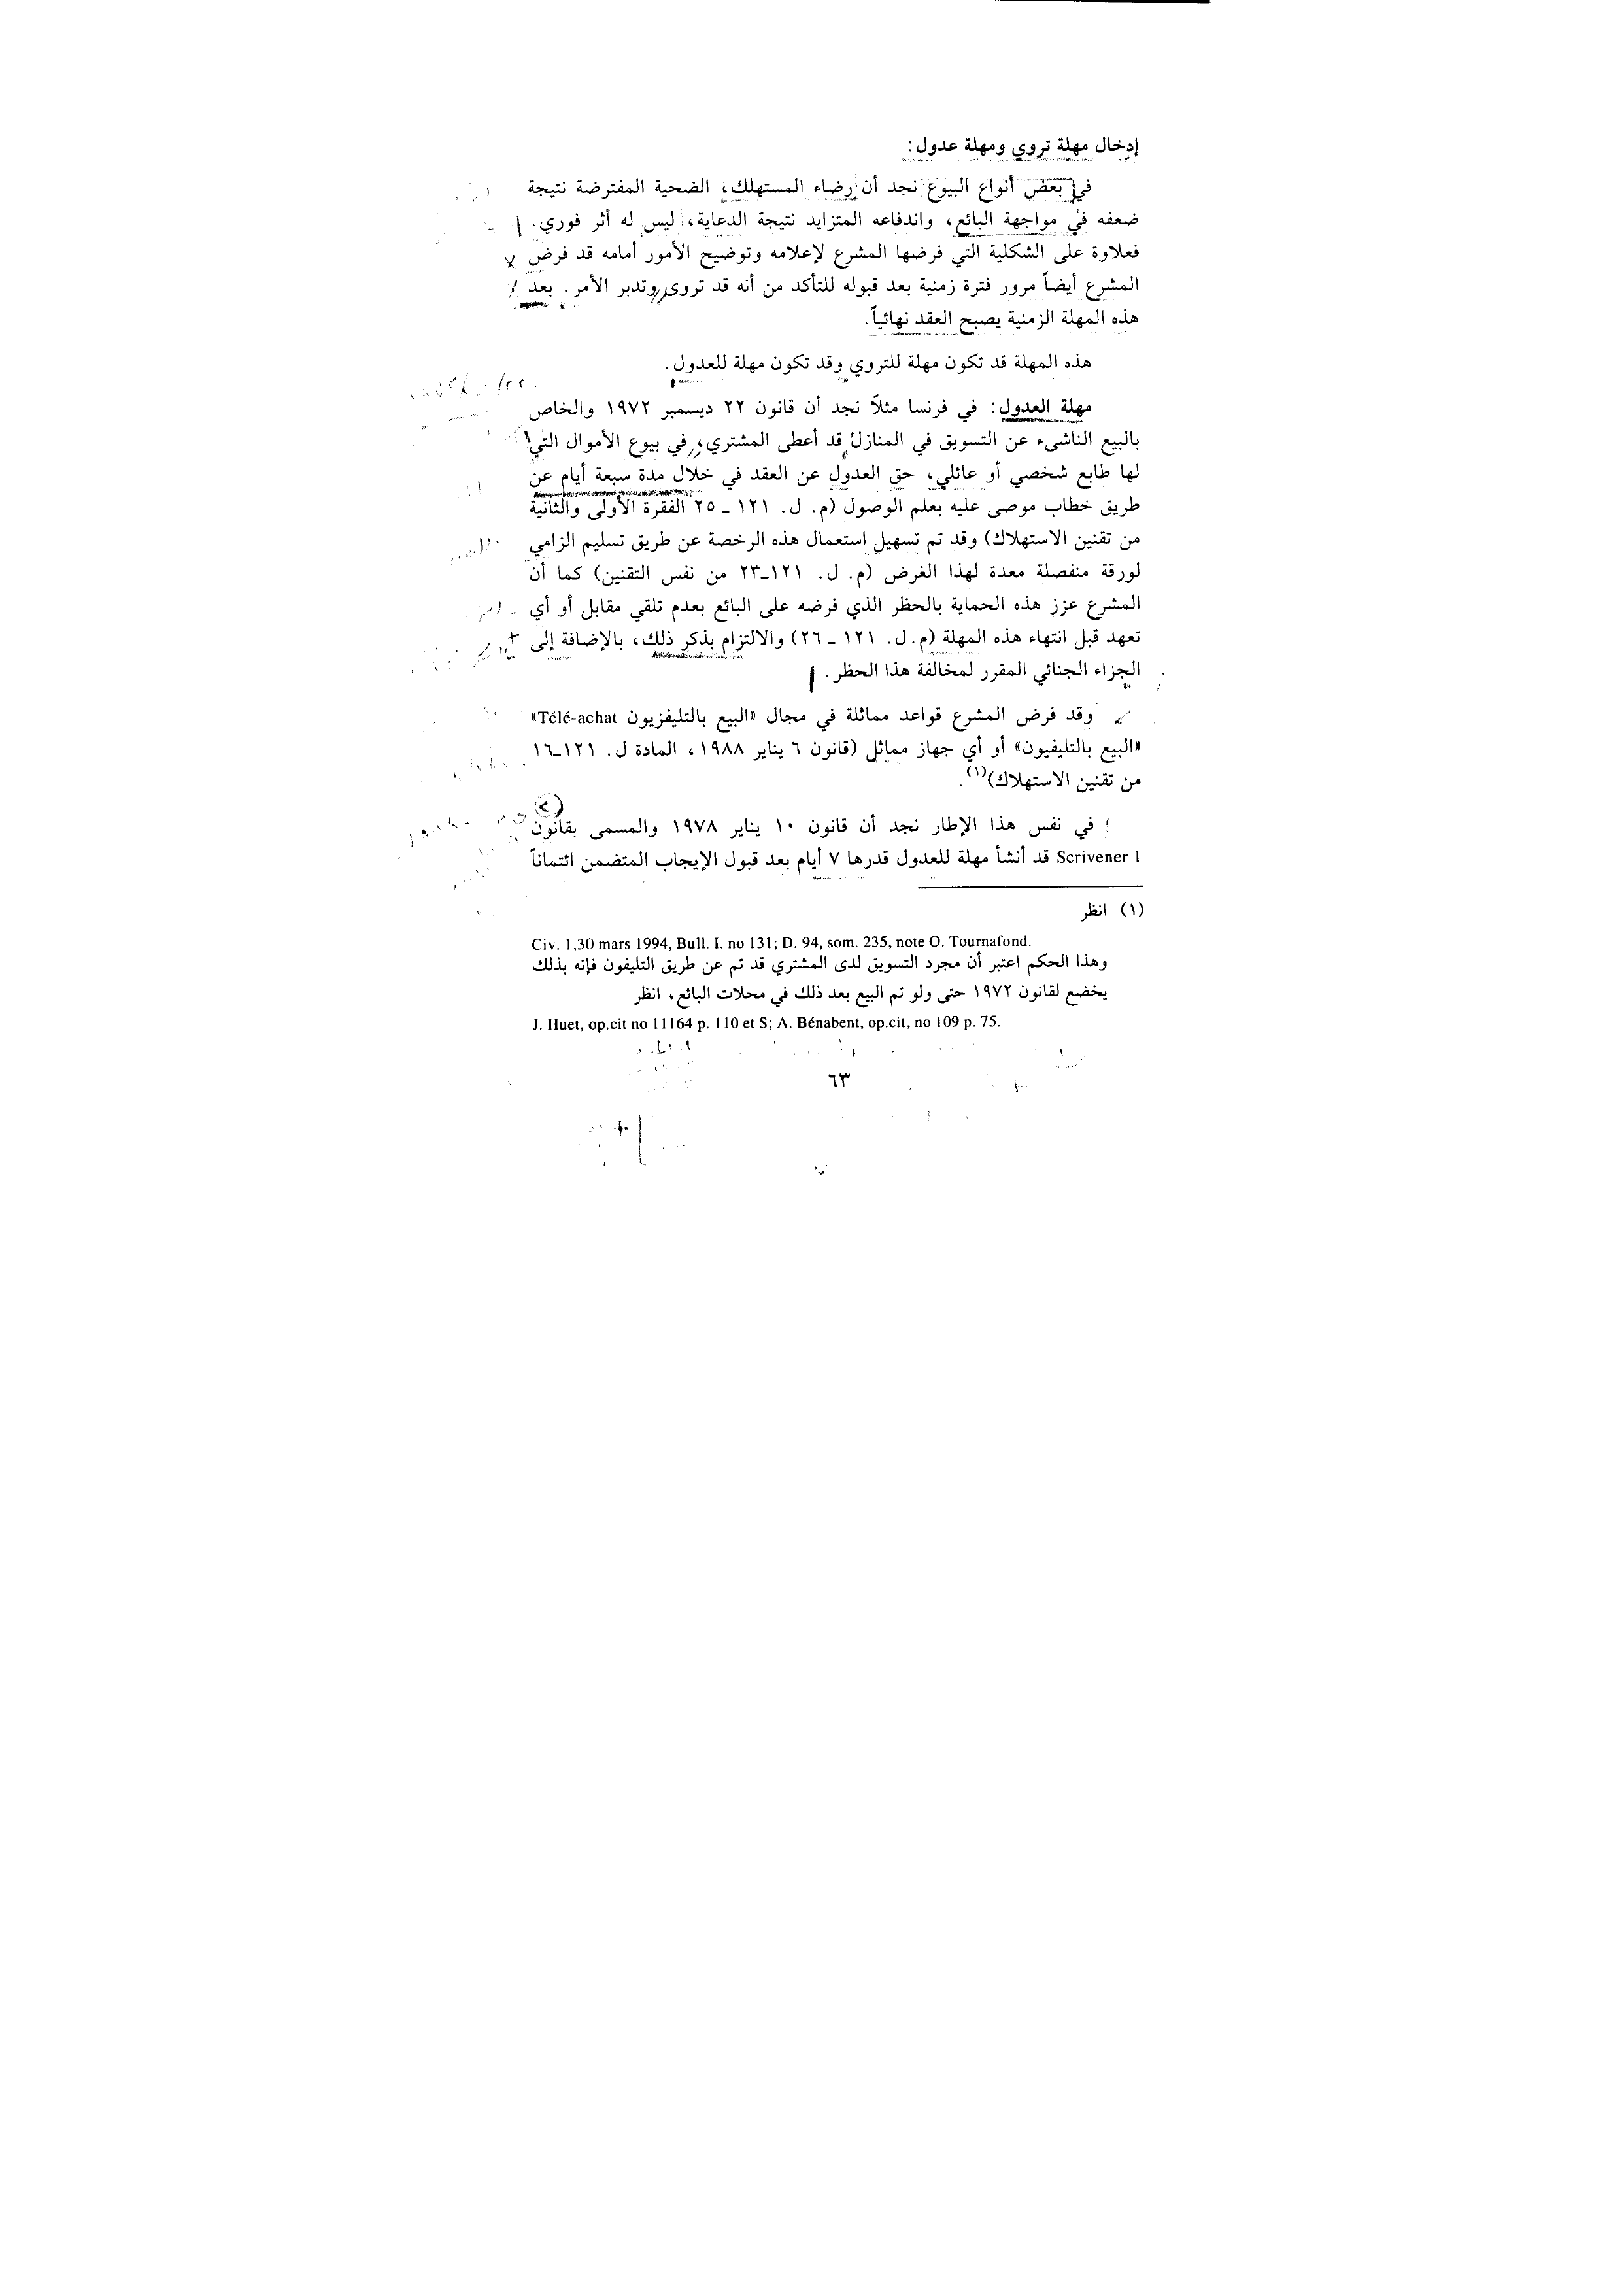 إدخال مهلة تروي ومهلة عدول:
في بعض أنواع البيوع نجد أن رضاء المستهلك، الضحية المفترضة نتيجة
ضعفه في مواجهة البائع، واندفاعه المتزايد نتيجة الدعاية، ليس له أثر فوري.
فعلاوة على الشكلية التي فرضها المشرع لإعلامه وتوضيح الأمور أمامه قد فرض
المشرع أيضاً مرور فترة زمنية بعد قبوله للتأكد من أنه قد تروى وتدبر الأمر. بعد
هذه المهلة الزمنية يصبح العقد نهائياً.
هذه المهلة قد تكون مهلة للتروي وقد تكون مهلة للعدول.
مهلة العدول: في فرنسا مثلاً نجد أن قانون ٢٢ ديسمبر ١٩٧٢ والخاص
بالبيع الناشىء عن التسويق في المنازل قد أعطى المشتري، في بيوع الأموال التي
لها طابع شخصي أو عائلي، حق العدول عن العقد في خلال مدة سبعة أيام عن
طريق خطاب موصى عليه بعلم الوصول (م. ل. ١٢١ ـ ٢٥ الفقرة الأولى والثانية
من تقنين الاستهلاك) وقد تم تسهيل استعمال هذه الرخصة عن طريق تسليم الزامي
لورقة منفصلة معدة لهذا الغرض (م. ل. ١٢١ـ٢٣ من نفس التقنين) كما أن
المشرع عزز هذه الحماية بالحظر الذي فرضه على البائع بعدم تلقي مقابل أو أي
تعهد قبل انتهاء هذه المهلة (م. ل. ١٢١ ـ ٢٦) والالتزام بذكر ذلك، بالإضافة إلى
الجزاء الجنائي المقرر لمخالفة هذا الحظر.
وقد فرض المشرع قواعد مماثلة في مجال «البيع بالتليفزيون Télé-achat»
«البيع بالتليفيون» أو أي جهاز مماثل (قانون ٦ يناير ١٩٨٨، المادة ل. ١٢١ـ١٦
من تقنين الاستهلاك)(١).
في نفس هذا الإطار نجد أن قانون ١٠ يناير ١٩٧٨ والمسمى بقانون
Scrivener I قد أنشأ مهلة للعدول قدرها ٧ أيام بعد قبول الإيجاب المتضمن ائتماناً
(١) انظر
Civ. 1,30 mars 1994, Bull. I. no 131; D. 94, som. 235, note O. Tournafond.
وهذا الحكم اعتبر أن مجرد التسويق لدى المشتري قد تم عن طريق التليفون فإنه بذلك
يخضع لقانون ١٩٧٢ حتى ولو تم البيع بعد ذلك في محلات البائع، انظر
J. Huet, op.cit no 11164 p. 110 et S; A. Bénabent, op.cit, no 109 p. 75.
٦٣